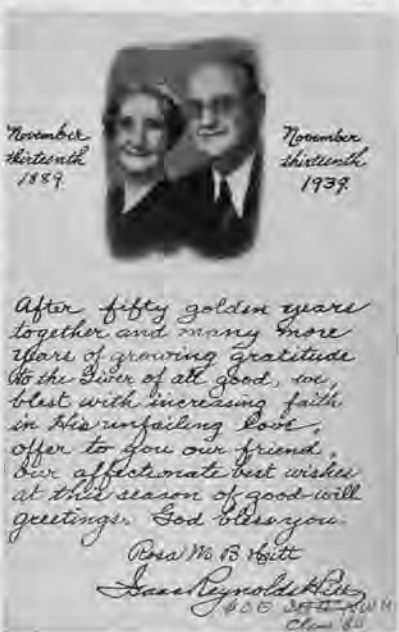 November
thirteenth
1889.
November
thirteenth
1939.
After fifty golden years
together and many more
years of growing gratitude
to the Giver of all good, we,
blest with increasing faith
in His unfailing love,
offer to you our friend,
our affectionate best wishes
at this season of good-will
greetings. God bless you.
Rosa M. B. Hitt
Isaac Reynolds Hitt
Class 80